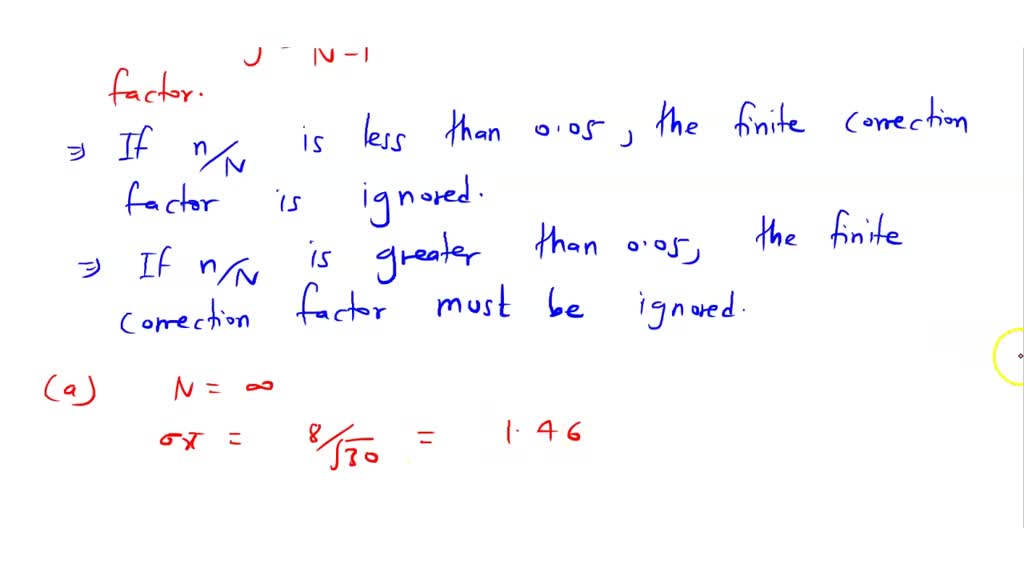 N-1
factor.
⇒ If n/N is less than 0.05, the finite correction
factor is ignored.
⇒ If n/N is greater than 0.05, the finite
correction factor must be ignored.
(a) N = ∞
σx̄ = 8/√30 = 1.46